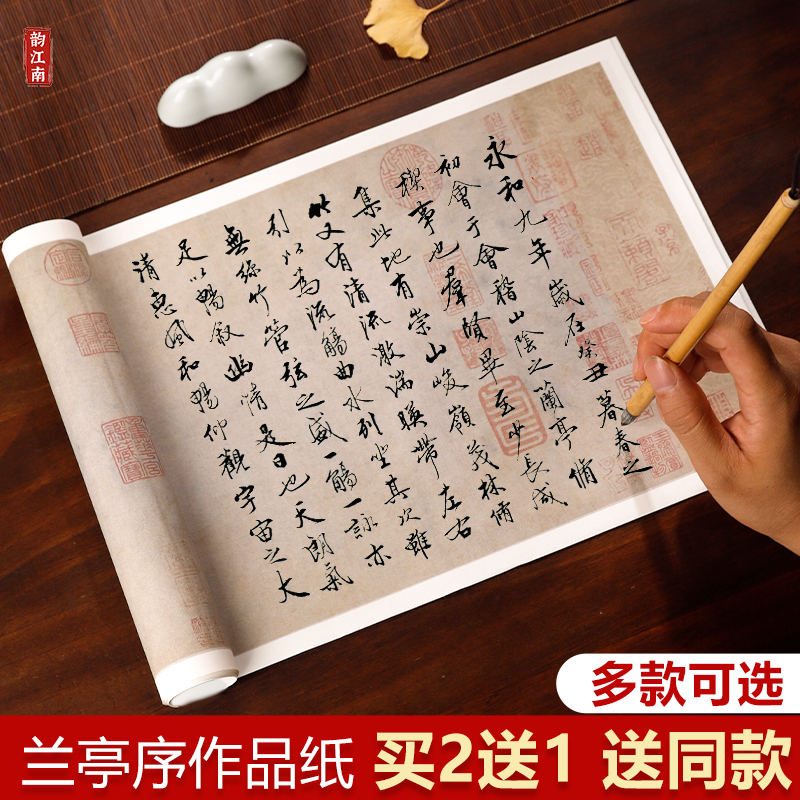 韵江南
永和九年歲在癸丑暮春之
初會于會稽山陰之蘭亭脩
禊事也羣賢畢至少長咸
集此地有崇山峻嶺茂林脩
竹又有清流激湍暎帶左右
引以為流觴曲水列坐其次雖
無絲竹管弦之盛一觴一詠亦
足以暢叙幽情是日也天朗氣
清惠風和暢仰觀宇宙之大
多款可选
兰亭序作品纸 买2送1 送同款